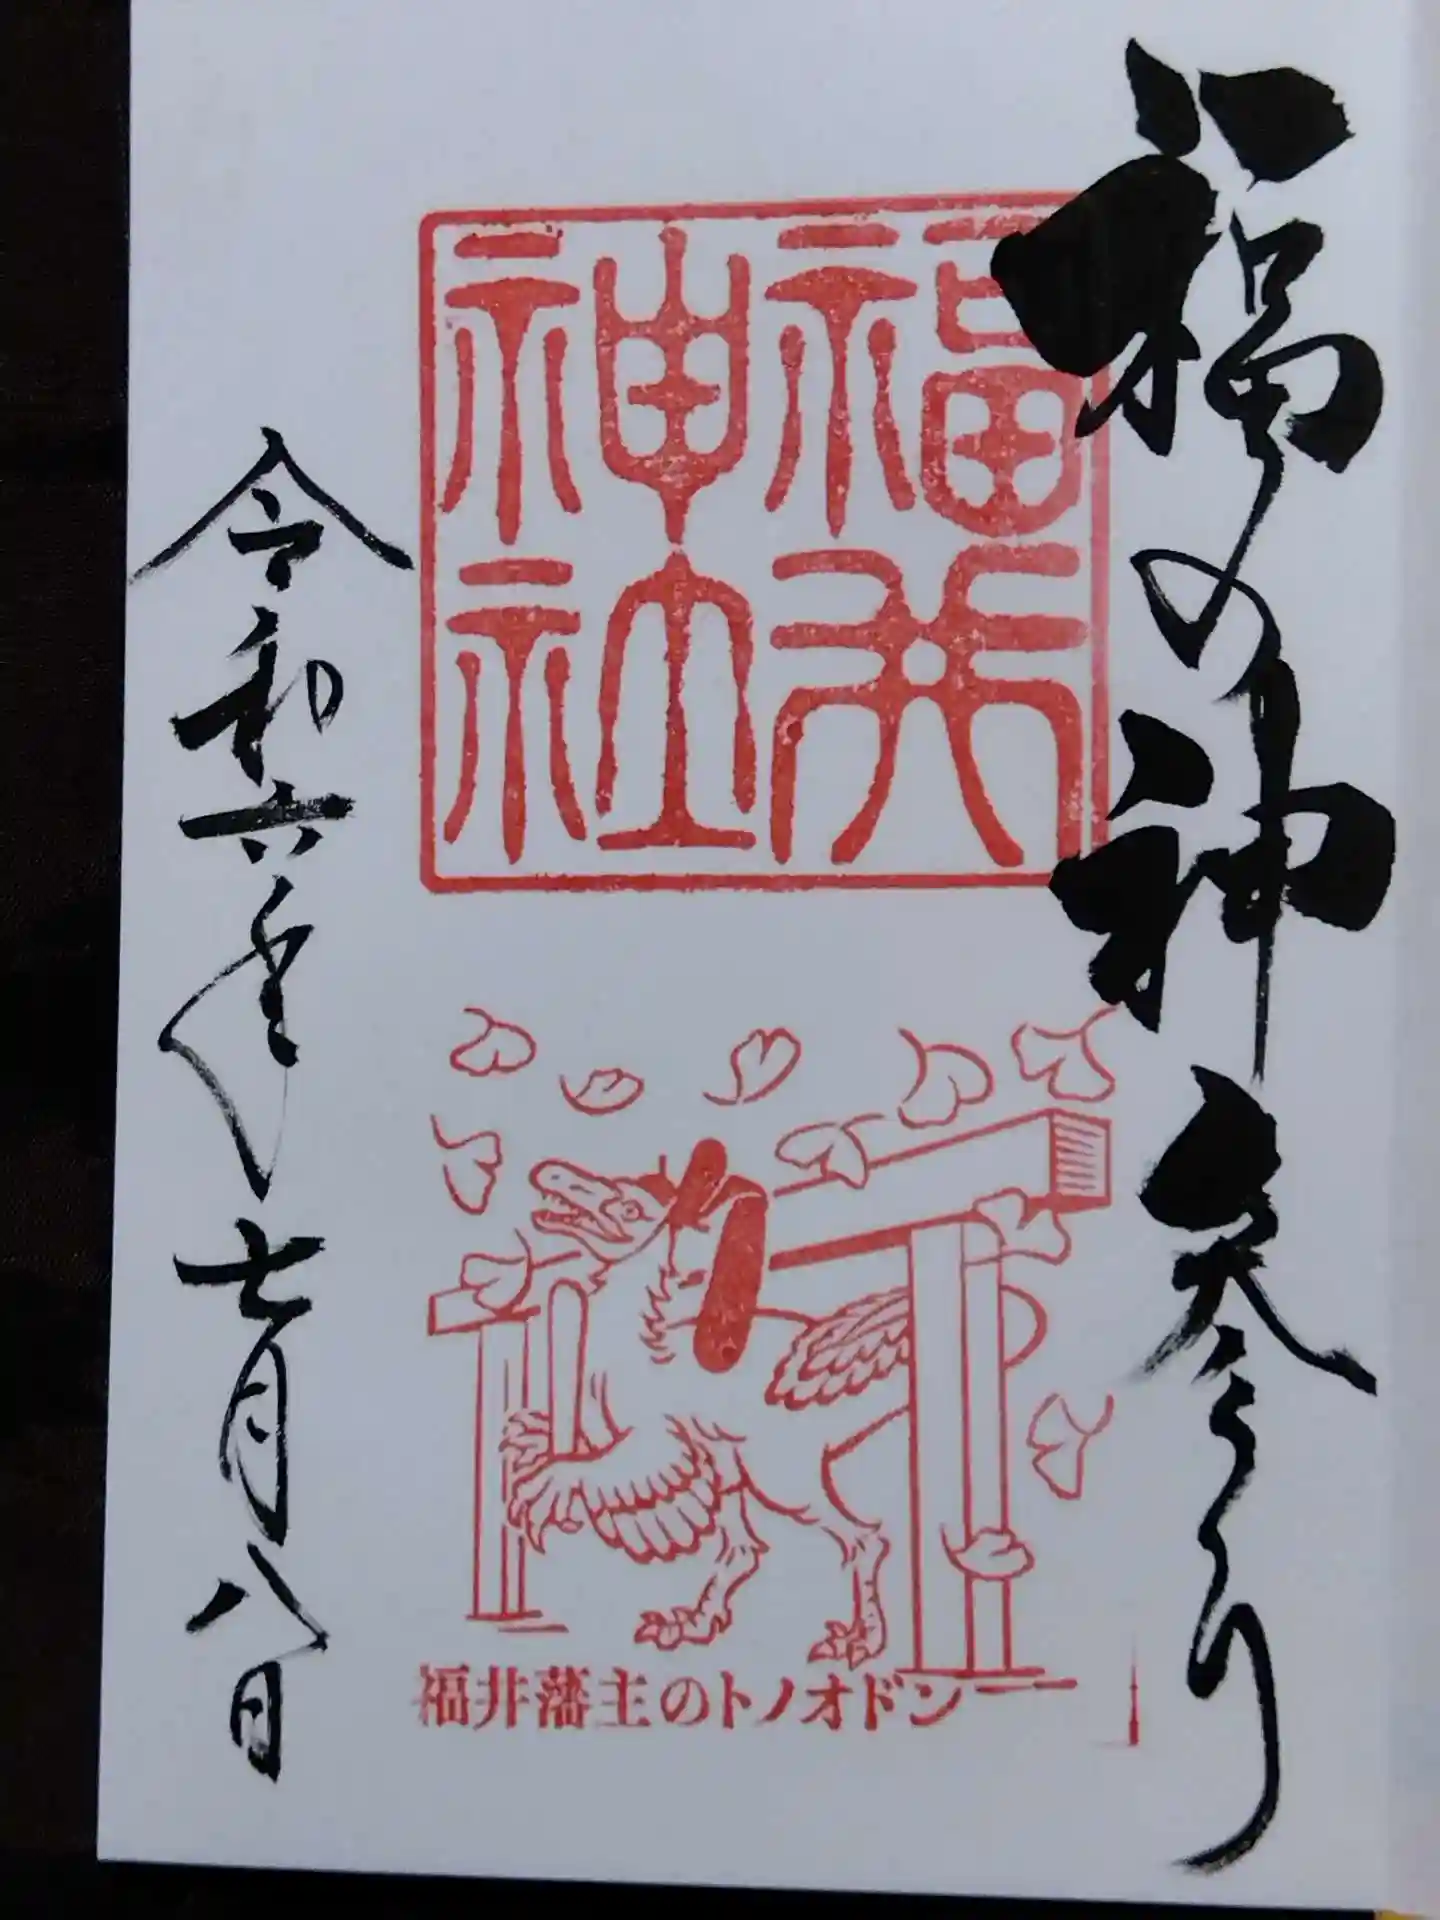 福の神参り
福井
神社
令和六年七月八日
福井藩主のトノオドン